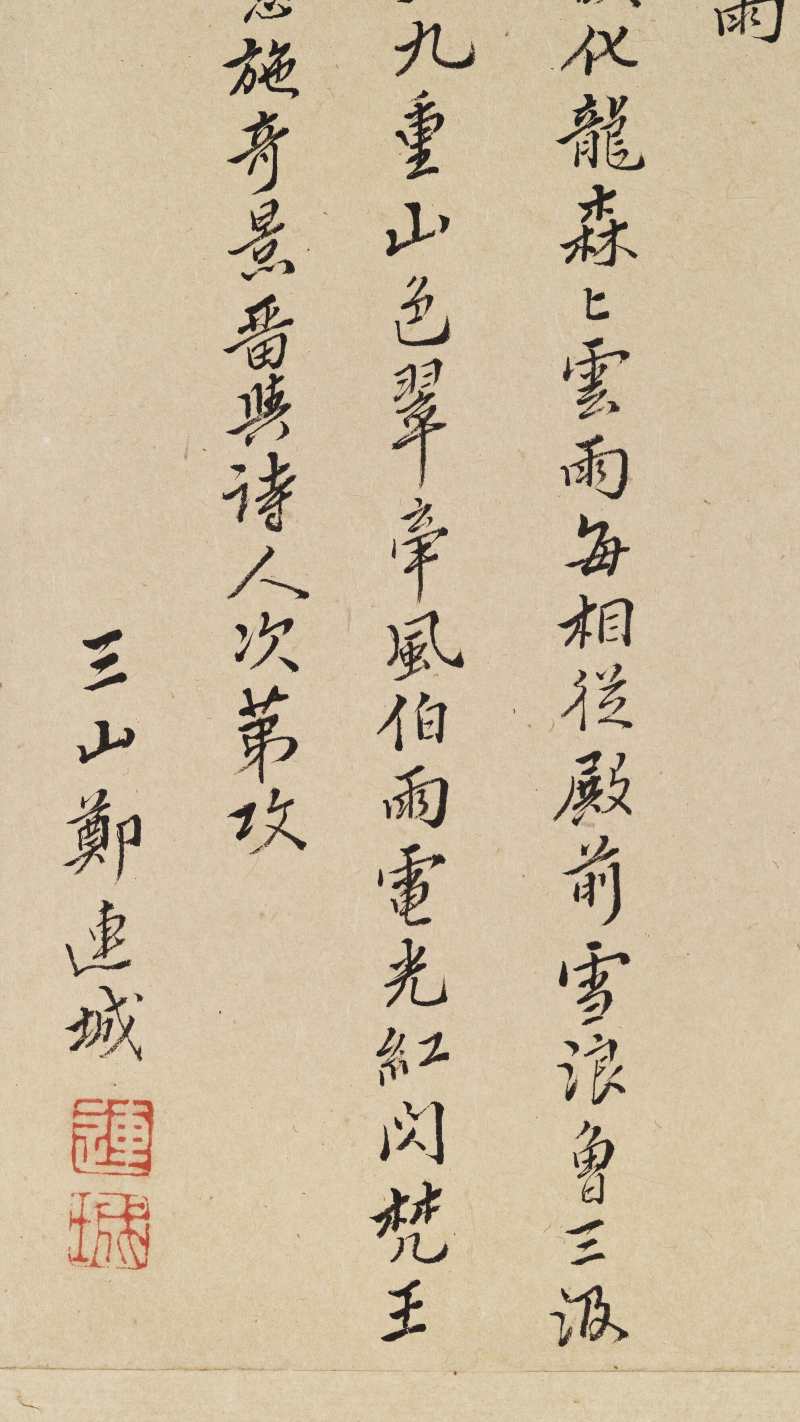 雨
化龍森〻雲雨每相從殿前雪浪魯三汲
九重山色翠牵風伯雨電光紅閃梵王
施奇景畨與詩人次第攻
三山鄭連城
連
城